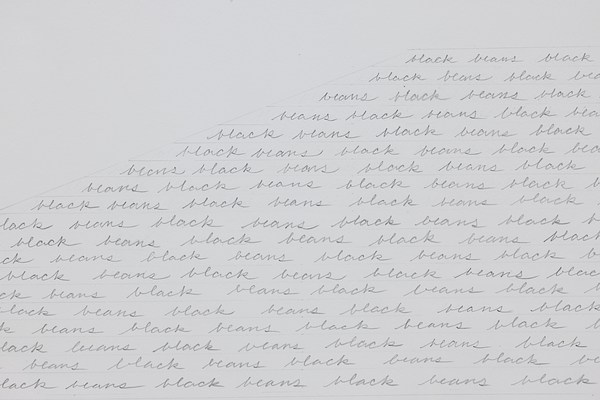 black beans black
black beans black bea
beans black beans black
beans black beans black bea
black beans black beans black
black beans black beans black b
beans black beans black beans black
beans black beans black beans black b
black beans black beans black beans black
lack beans black beans black beans black b
black beans black beans black beans black
ck beans black beans black beans black b
black beans black beans black beans black
ck beans black beans black beans black b
lack beans black beans black beans black
k beans black beans black beans black b
lack beans black beans black beans black
beans black beans black beans black be
lack beans black beans black beans black